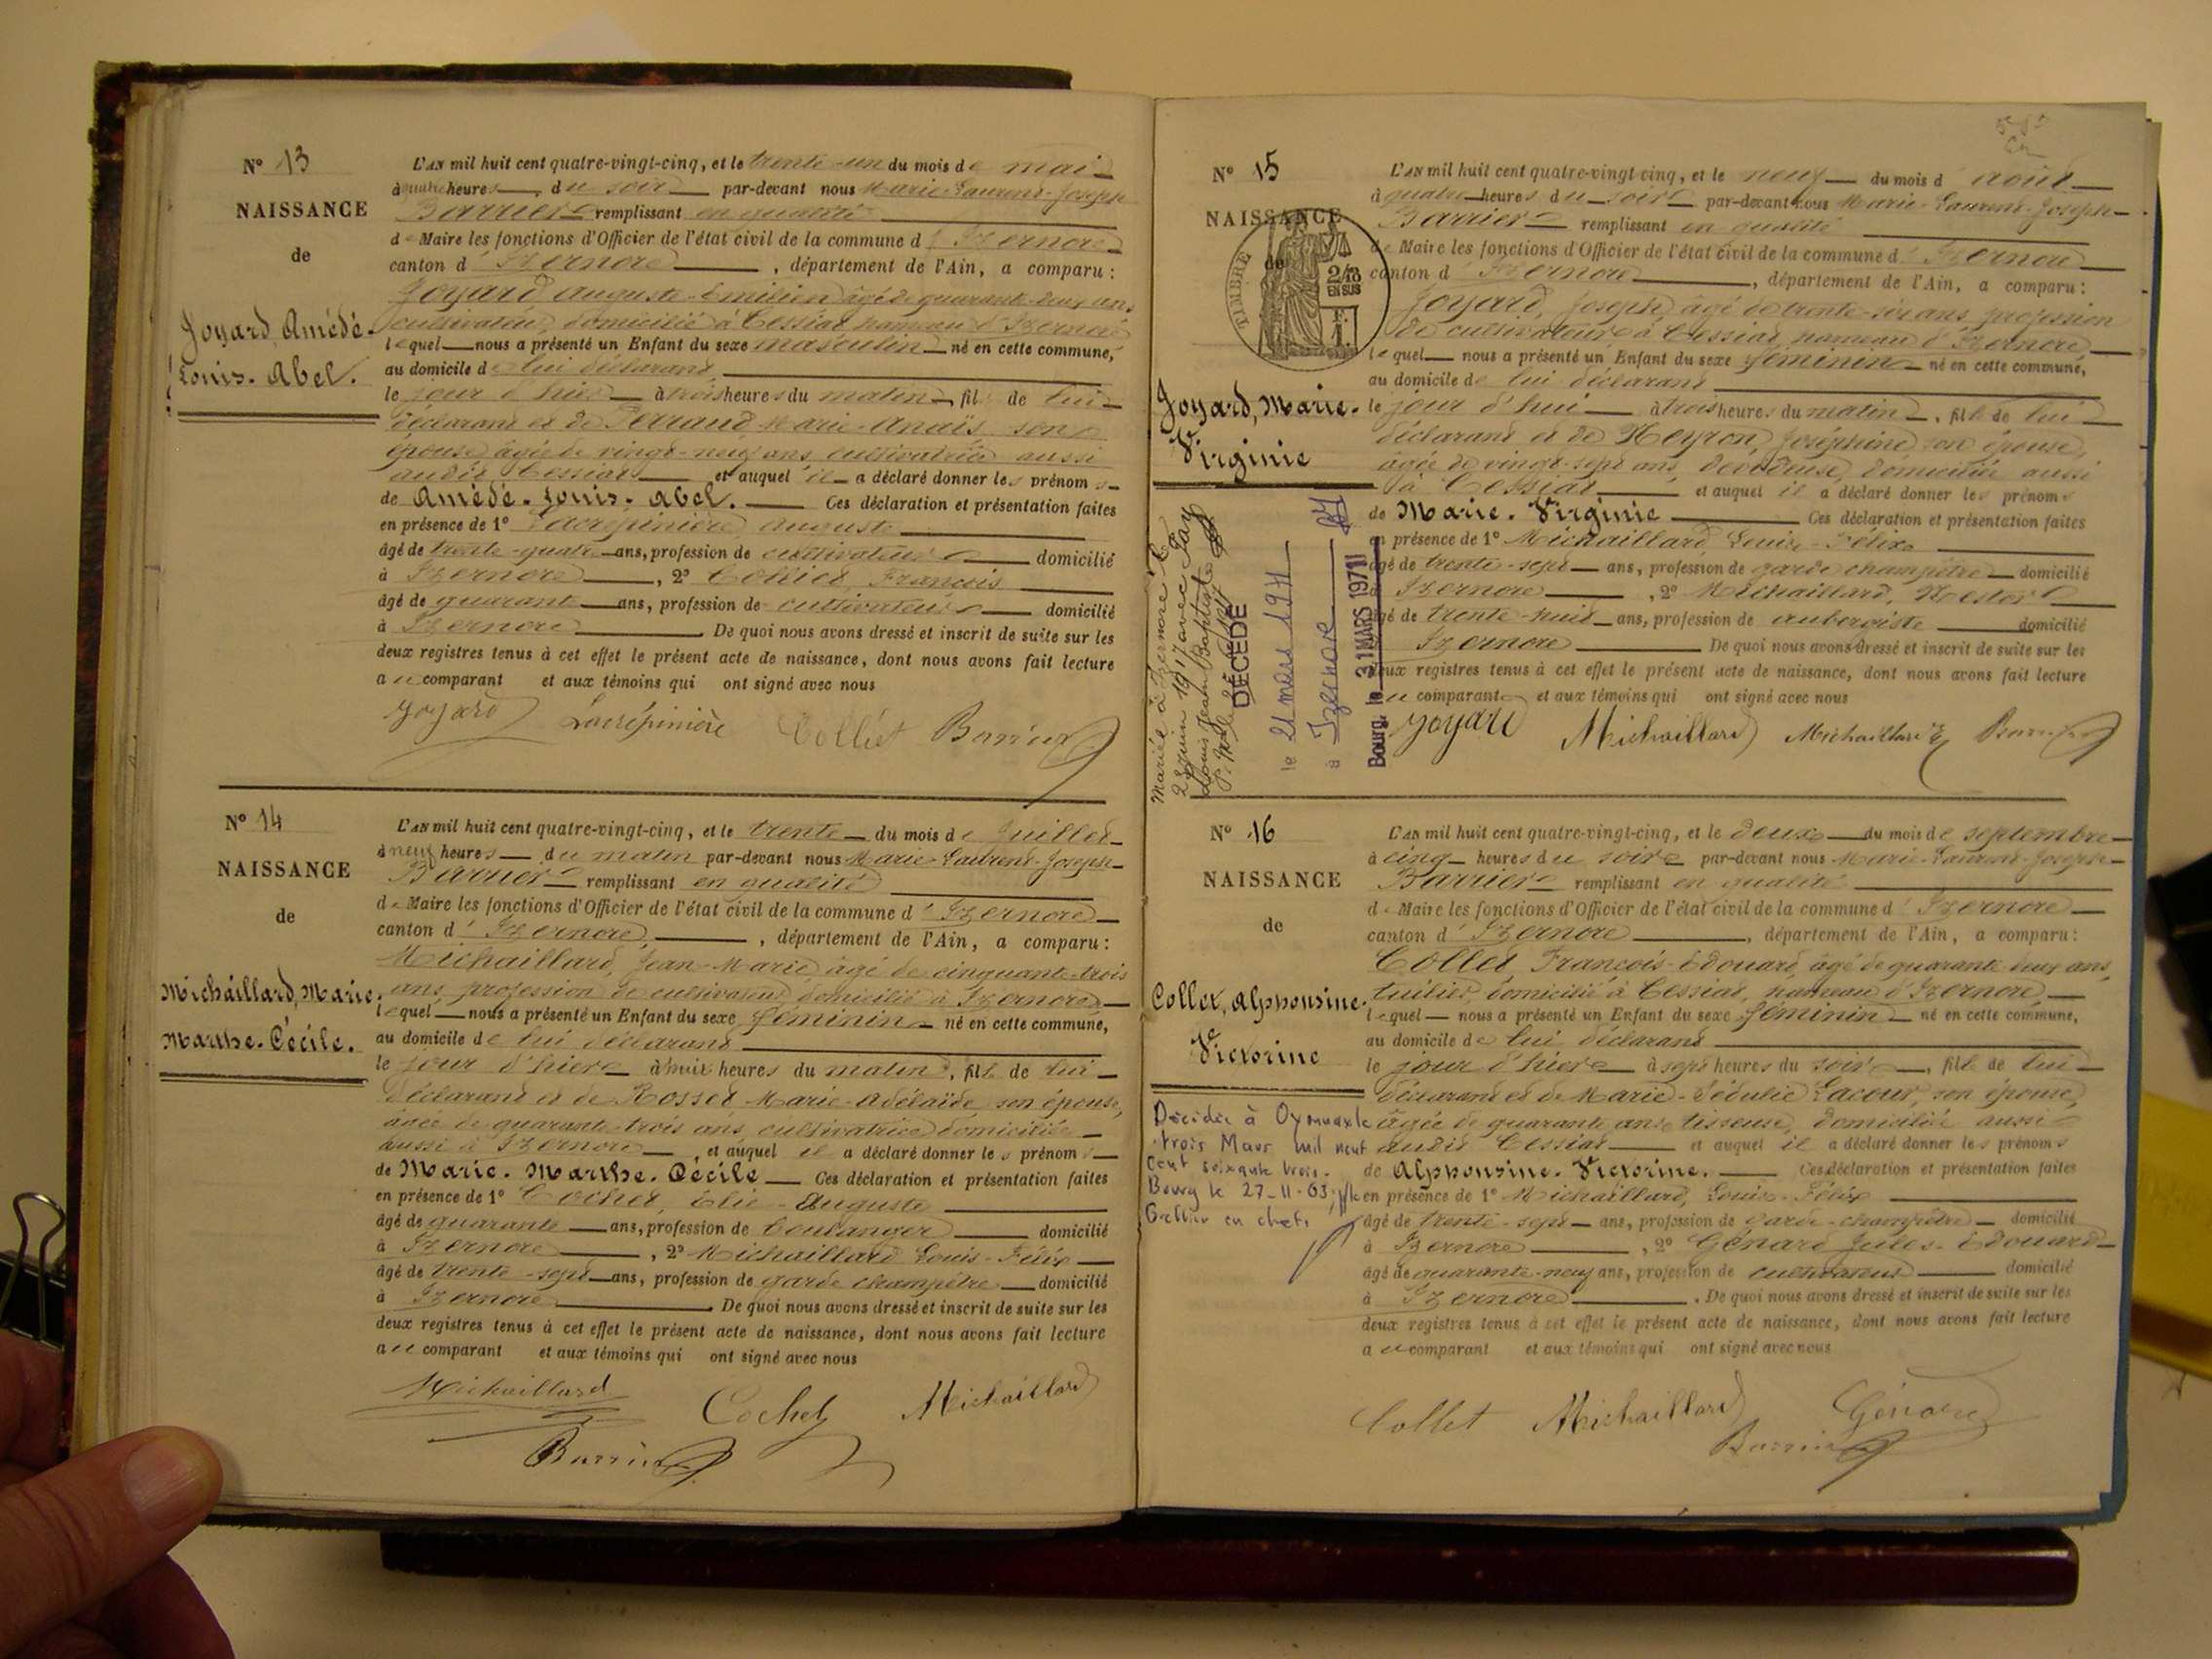 N° 13
NAISSANCE
de
Joyard, Amédé.
Louis. Abel.
L'AN mil huit cent quatre-vingt-cinq, et le trente-un du mois de mai
à quatre heures du soir par-devant nous Marie-Laurent-Joseph
Barrier remplissant en qualité
de Maire les fonctions d'Officier de l'état civil de la commune d'Izernore
canton d'Izernore, département de l'Ain, a comparu :
Joyard Auguste-Emilien âgé de quarante-deux ans
cultivateur, domicilié à Cessiat hameau d'Izernore
lequel nous a présenté un Enfant du sexe masculin né en cette commune,
au domicile de lui déclarant
le jour d'hier à trois heures du matin, fils de lui
déclarant et de Perraud Marie-Anaïs son
épouse âgée de vingt-neuf ans cultivatrice aussi
audit Cessiat et auquel il a déclaré donner les prénoms
de Amédé. Louis. Abel. Ces déclaration et présentation faites
en présence de 1° Lacrépinière Auguste
âgé de trente-quatre ans, profession de cultivateur domicilié
à Izernore, 2° Colliet François
âgé de quarante ans, profession de cultivateur domicilié
à Izernore. De quoi nous avons dressé et inscrit de suite sur les
deux registres tenus à cet effet le présent acte de naissance, dont nous avons fait lecture
au comparant et aux témoins qui ont signé avec nous
Joyard Lacrépinière Colliet Barrier
N° 14
NAISSANCE
de
Michaillard, Marie.
Marthe. Cécile.
L'AN mil huit cent quatre-vingt-cinq, et le trente du mois de juillet
à neuf heures du matin par-devant nous Marie-Laurent-Joseph
Barrier remplissant en qualité
de Maire les fonctions d'Officier de l'état civil de la commune d'Izernore
canton d'Izernore, département de l'Ain, a comparu :
Michaillard, Jean-Marie âgé de cinquante-trois
ans profession de cultivateur domicilié à Izernore
lequel nous a présenté un Enfant du sexe féminin né en cette commune,
au domicile de lui déclarant
le jour d'hier à huit heures du matin, fille de lui
déclarant et de Rosset Marie-Adélaïde, son épouse,
âgée de quarante-trois ans, cultivatrice domiciliée
aussi à Izernore, et auquel il a déclaré donner les prénoms
de Marie. Marthe. Cécile Ces déclaration et présentation faites
en présence de 1° Cochet, Elie-Auguste
âgé de quarante ans, profession de boulanger domicilié
à Izernore, 2° Michaillard Louis-Félix
âgé de trente-sept ans, profession de garde champêtre domicilié
à Izernore. De quoi nous avons dressé et inscrit de suite sur les
deux registres tenus à cet effet le présent acte de naissance, dont nous avons fait lecture
au comparant et aux témoins qui ont signé avec nous
Michaillard Cochet Michaillard
Barrier
N° 15
NAISSANCE
de
TIMBRE
2/10
EN SUS
Joyard, Marie.
Virginie
L'AN mil huit cent quatre-vingt cinq, et le neuf du mois d'août
à quatre heures du soir par-devant nous Marie-Laurent-Joseph
Barrier remplissant en qualité
de Maire les fonctions d'Officier de l'état civil de la commune d'Izernore
canton d'Izernore, département de l'Ain, a comparu :
Joyard, Joseph, âgé de trente-six ans, profession
de cultivateur à Cessiat, hameau d'Izernore,
lequel nous a présenté un Enfant du sexe féminin né en cette commune,
au domicile de lui déclarant
le jour d'hui à trois heures du matin, fille de lui
déclarant et de Heyron, Joséphine, son épouse,
âgée de vingt-sept ans, dévideuse, domiciliée aussi
à Cessiat et auquel il a déclaré donner les prénoms
de Marie. Virginie Ces déclaration et présentation faites
en présence de 1° Michaillard, Louis-Félix
âgé de trente-sept ans, profession de garde champêtre domicilié
à Izernore, 2° Michaillard, Nestor
âgé de trente-huit ans, profession de aubergiste domicilié
Izernore De quoi nous avons dressé et inscrit de suite sur les
deux registres tenus à cet effet le présent acte de naissance, dont nous avons fait lecture
au comparant et aux témoins qui ont signé avec nous
Joyard Michaillard Michaillard Barrier
Mariée à Izernore le
28 juin 1917 avec
Louis Jean Baptiste
DÉCÉDÉ
le 21 mars 1971
à Izernore
Bourg, le 31 MARS 1971
N° 16
NAISSANCE
de
Collet, Alphonsine.
Victorine
L'AN mil huit cent quatre-vingt-cinq, et le deux du mois de septembre
à cinq heures du soir par-devant nous Marie-Laurent-Joseph
Barrier remplissant en qualité
de Maire les fonctions d'Officier de l'état civil de la commune d'Izernore
canton d'Izernore, département de l'Ain, a comparu :
Collet, François-Edouard, âgé de quarante-deux ans,
tuilier, domicilié à Cessiat, hameau d'Izernore,
lequel nous a présenté un Enfant du sexe féminin né en cette commune,
au domicile de lui déclarant
le jour d'hier à sept heures du soir, fille de lui
déclarant et de Marie-Sédulie Lacour, son épouse,
âgée de quarante ans tisseuse, domiciliée aussi
audit Cessiat et auquel il a déclaré donner les prénoms
de Alphonsine. Victorine. Ces déclaration et présentation faites
en présence de 1° Michaillard, Louis-Félix
âgé de trente-sept ans, profession de garde-champêtre domicilié
à Izernore, 2° Génard Jules-Edouard
âgé de quarante-neuf ans, profession de cultivateur domicilié
à Izernore. De quoi nous avons dressé et inscrit de suite sur les
deux registres tenus à cet effet le présent acte de naissance, dont nous avons fait lecture
au comparant et aux témoins qui ont signé avec nous
Collet Michaillard Génard
Barrier
Décédée à Oyonnax le
trois Mars mil neuf
cent soixante trois.
Bourg le 27-11-63, le
Greffier en chef,